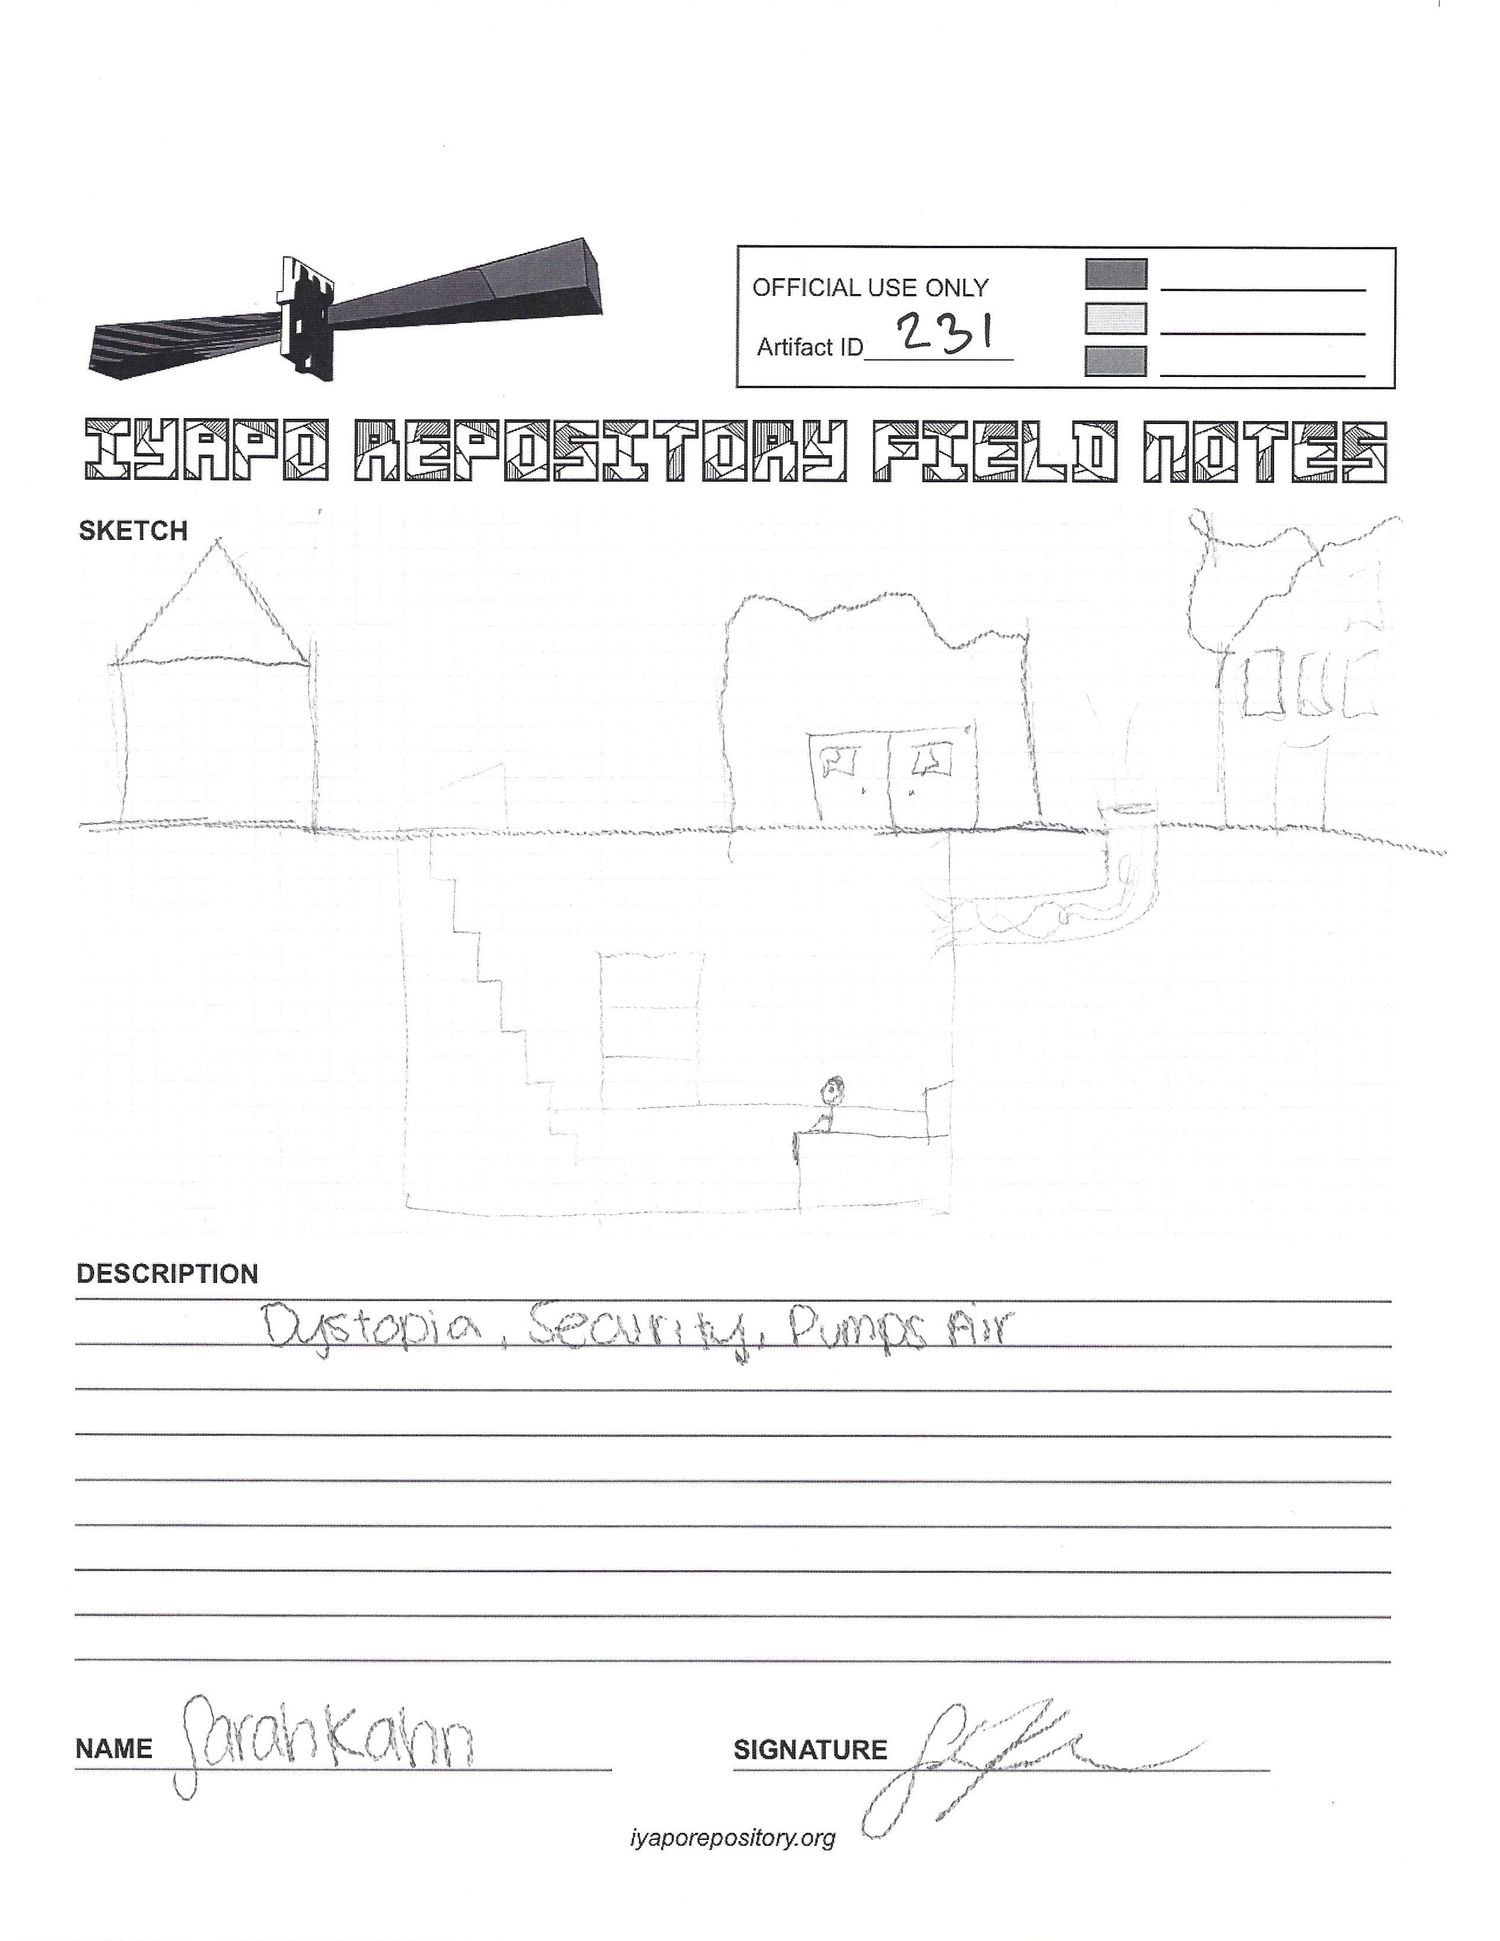 OFFICIAL USE ONLY
Artifact ID 231
IYAPO REPOSITORY FIELD NOTES
SKETCH
DESCRIPTION
Dystopia, Security, Pumps Air
NAME Sarah Kahn
SIGNATURE
iyaporepository.org